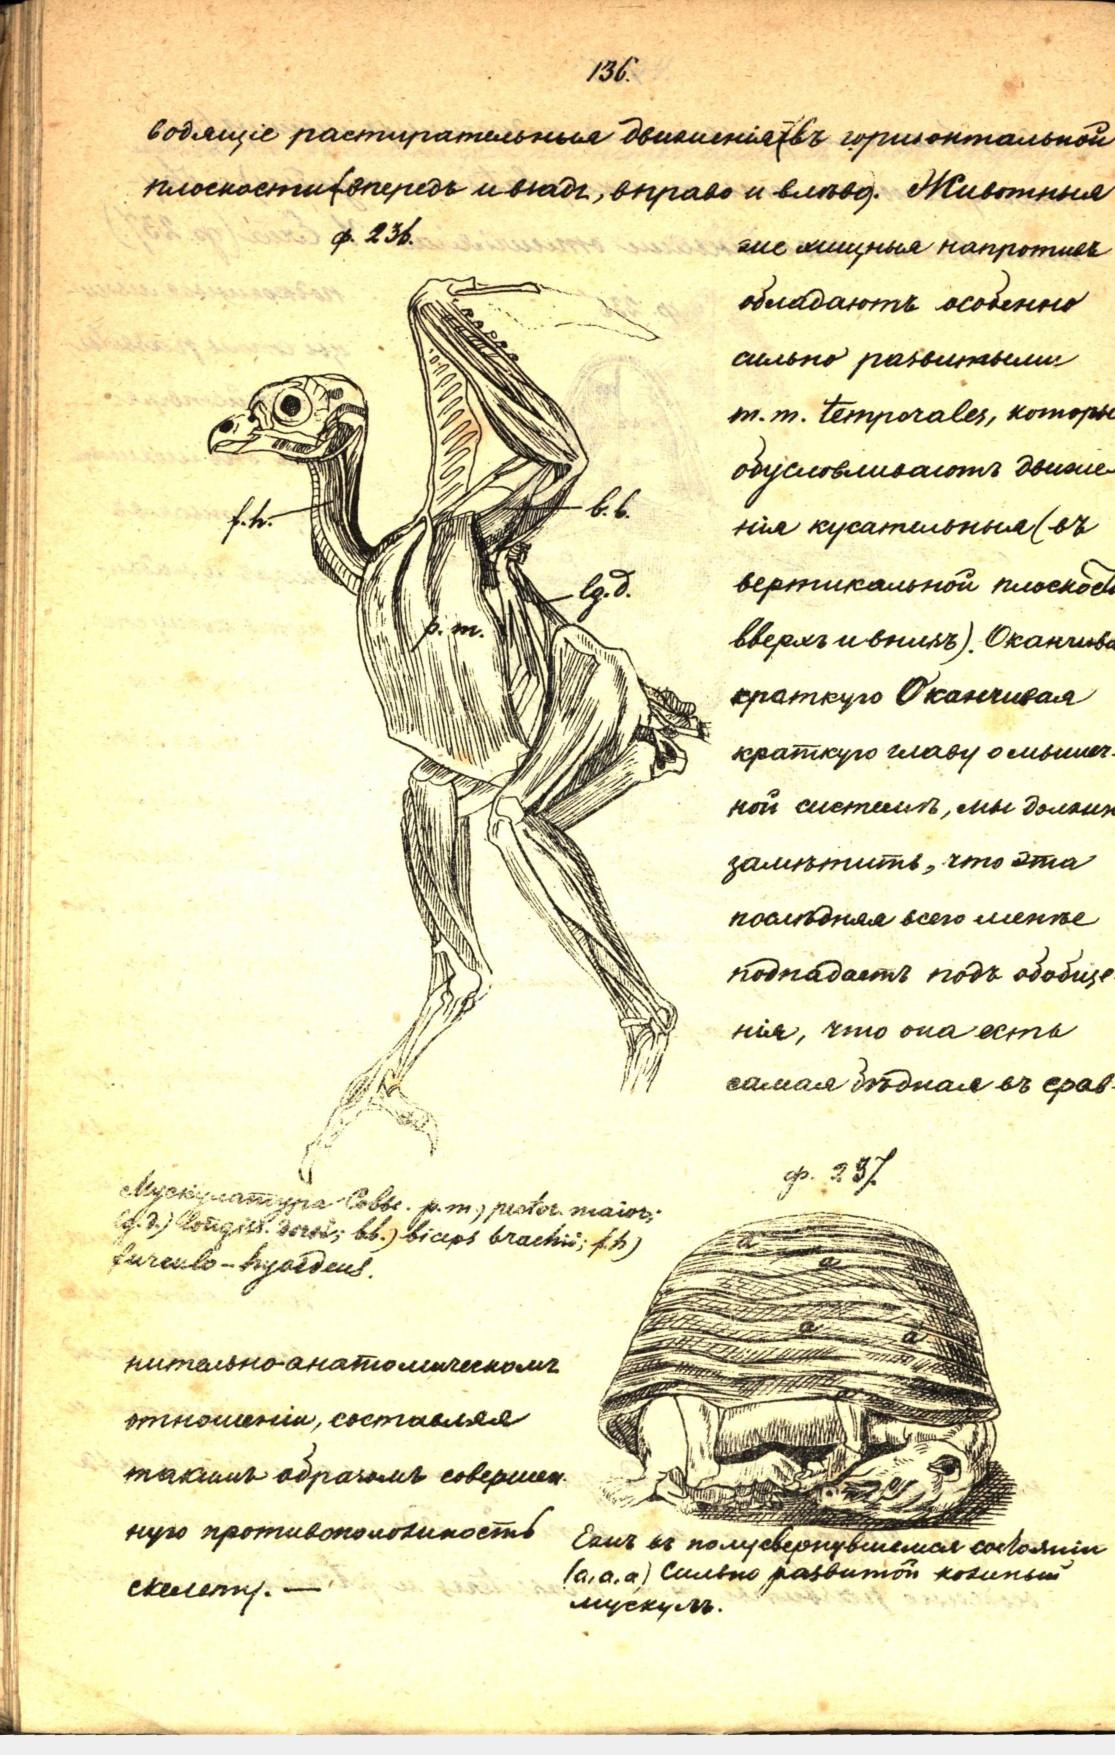 136.
водящіе растирательныя движенія (въ горизонтальной
плоскости (впередъ и взадъ, вправо и влѣво). Животныя
ф. 236.
же хищныя напротивъ
обладаютъ особенно
сильно развитыми
m. m. temporales, которы
обусловливаютъ движе-
нія кусательныя (въ
вертикальной плоскос
вверхъ и внизъ). Оканчива
краткую Оканчивая
краткую главу о мышеч-
ной системѣ, мы должн
замѣтить, что эта
послѣдняя всего менѣе
подпадаетъ подъ обобще-
нія, что она есть
самая бѣдная въ срав-
f. h.
b. b.
lg. d.
p. m.
ф. 237.
Мускулатура p. m.) pector. maior;
lg. d.) longis. dorsi; bb.) biceps brachii; f. h)
furculo-hyoideus.
a
a
a
a
a
нительно-анатомическомъ
отношеніи, составляя
такимъ образомъ совершен-
ную противоположность
скелету. —
Ежъ въ полусвернувшемся состояніи
(a, a, a) Сильно развитой кожный
мускулъ.